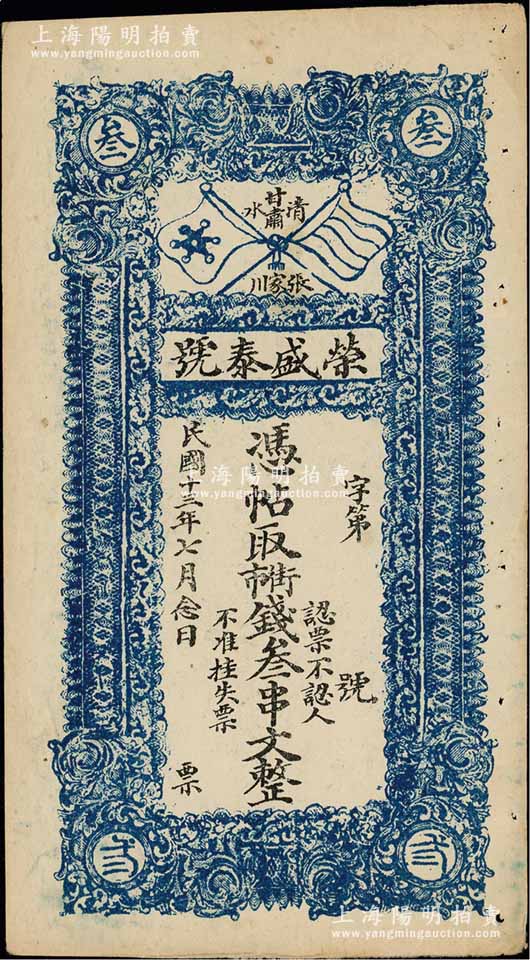 上海陽明拍賣
www.yangmingauction.com
叁
叁
甘肅
清水
張家川
榮盛泰號
字第
號
憑帖取街市錢叁串文整
認票不認人
不准挂失票
民國十二年七月念日
票
弎
弎
上海陽明拍賣
www.yangmingauction.com
上海陽明拍賣
www.yangmingauction.com